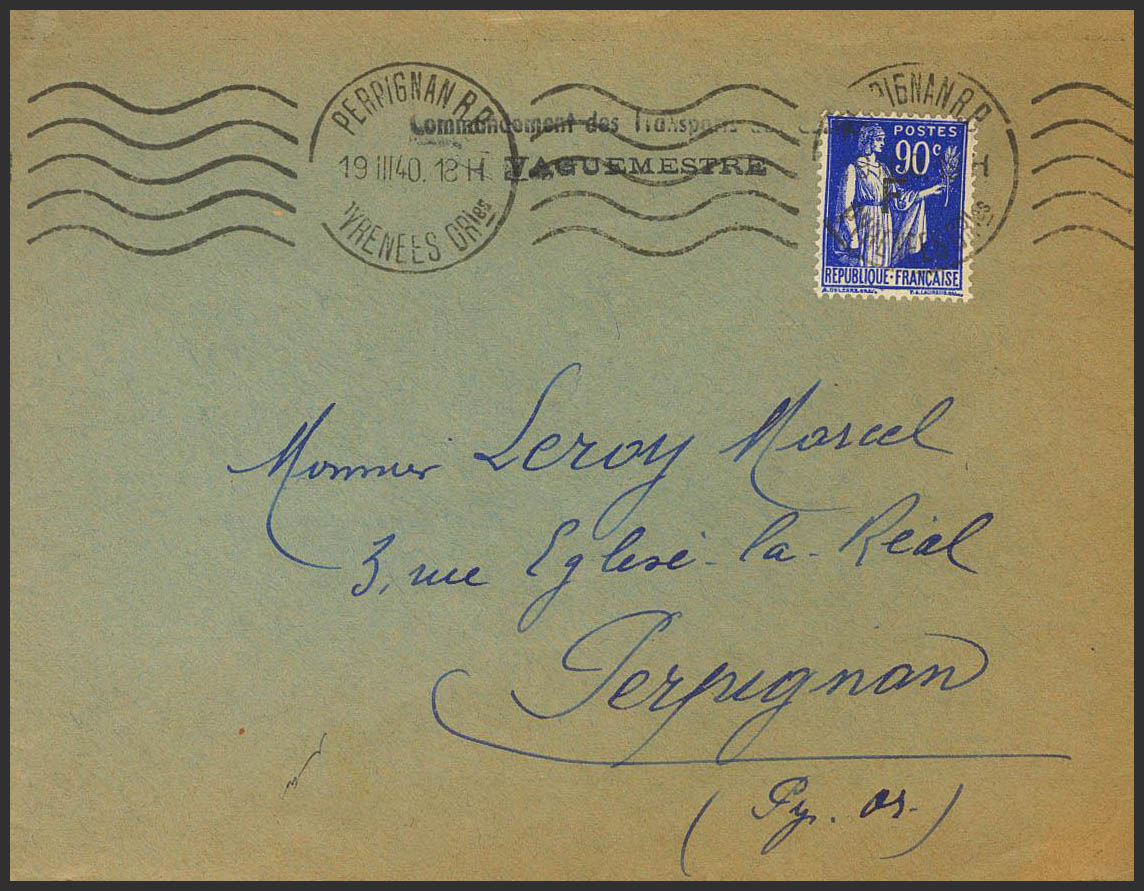 PERPIGNAN R.P.
19 III 40. 18 H
PYRENEES ORIes
Commandement des Transports
VAGUEMESTRE
PIGNAN R.P
H
POSTES
90c
F
REPUBLIQUE·FRANÇAISE
Monsieur Leroy Marcel
3, rue Eglise-la-Réal
Perpignan
(Py. Or.)